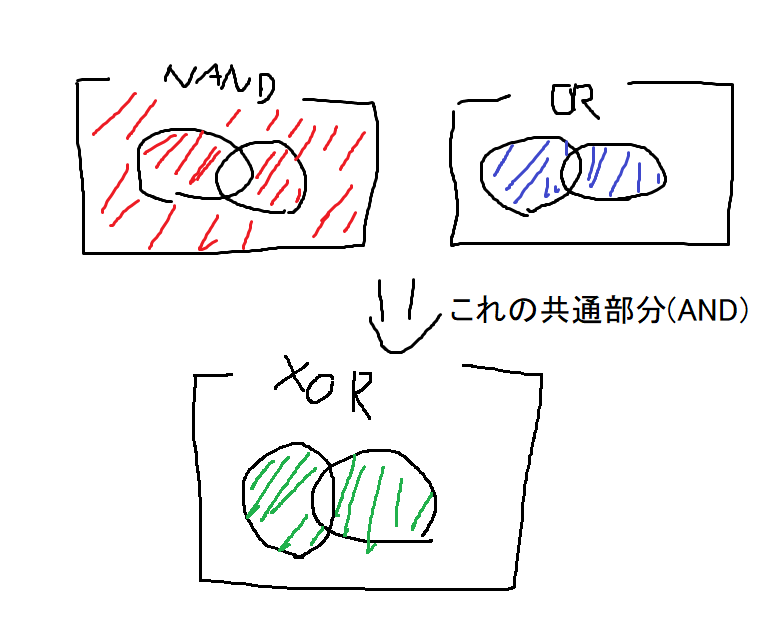 NAND
OR
これの共通部分(AND)
XOR